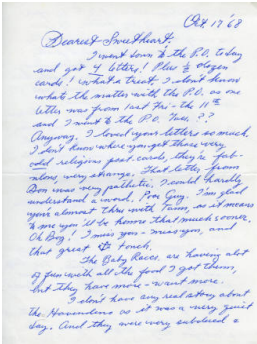 Oct 17 '68
Dearest Sweetheart,
I went down to the P.O. today
and got 4 letters! Plus ½ dozen
cards! What a treat. I don't know
whats the matter with the P.O. as one
letter was from last Fri - the 11th
and I went to the P.O. Tues. ??
Anyway, I loved your letters so much.
I don't know where you got those very
odd religious post cards, they're fab-
ulous, very strange. That letter from
Don was very pathetic. I could hardly
understand a word. Poor Guy. I'm glad
your almost thru with as it means
to me you'll be home that much sooner.
Oh Boy, I miss you - miss you, and
that great touch.
The Baby Races are having alot
of fun with all the food I got them,
but they have more - want more.
I don't have any real story about
the as it was a very quiet
day. And they were very subdued a